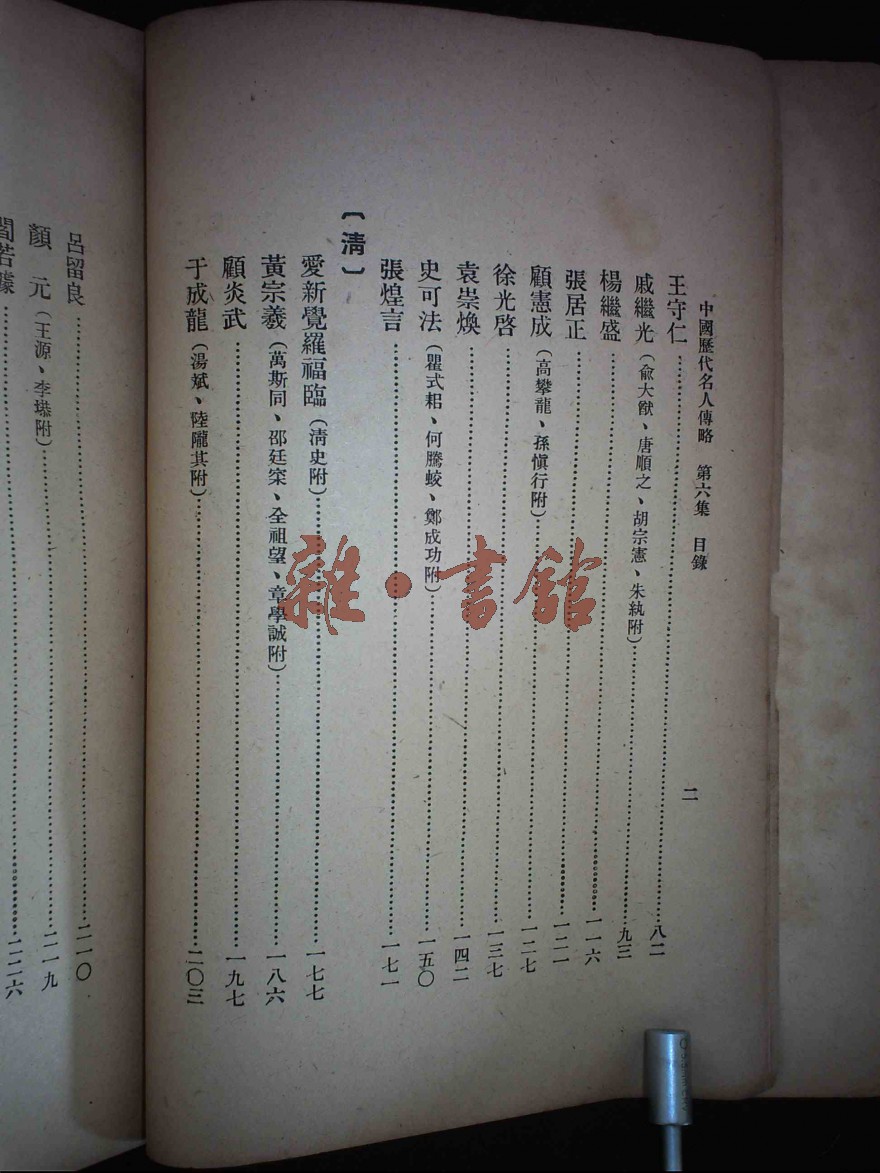 中國歷代名人傳略　第六集　目錄
二
王守仁……八二
戚繼光（俞大猷、唐順之、胡宗憲、朱紈附）……九三
楊繼盛……一一六
張居正……一二一
顧憲成（高攀龍、孫愼行附）……一二七
徐光啓……一三七
袁崇煥……一四二
史可法（瞿式耜、何騰蛟、鄭成功附）……一五〇
張煌言……一七一
〔清〕
愛新覺羅福臨（淸史附）……一七七
黃宗羲（萬斯同、邵廷寀、全祖望、章學誠附）……一八六
顧炎武……一九七
于成龍（湯斌、陸隴其附）……二〇三
呂留良……二一〇
顏　元（王源、李塨附）……二一九
閻若璩……二二六
雜·書館